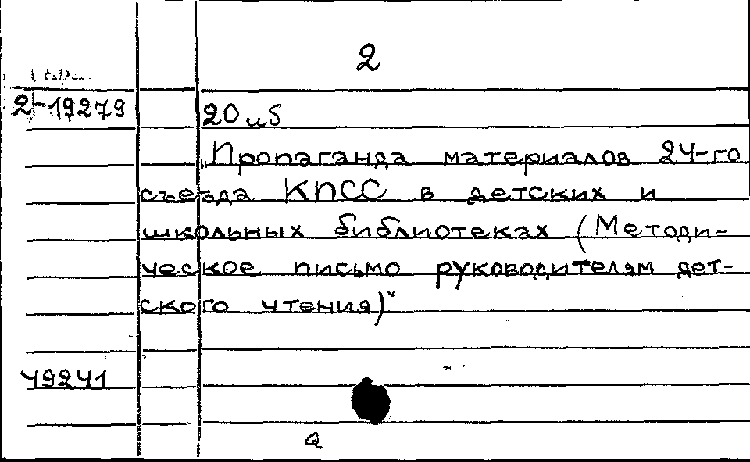 2
2-19279
20 и 5
„Пропаганда материалов 24-го
съезда КПСС в детских и
школьных библиотеках (Методи-
ческое письмо руководителям дет-
ского чтения)"
49241